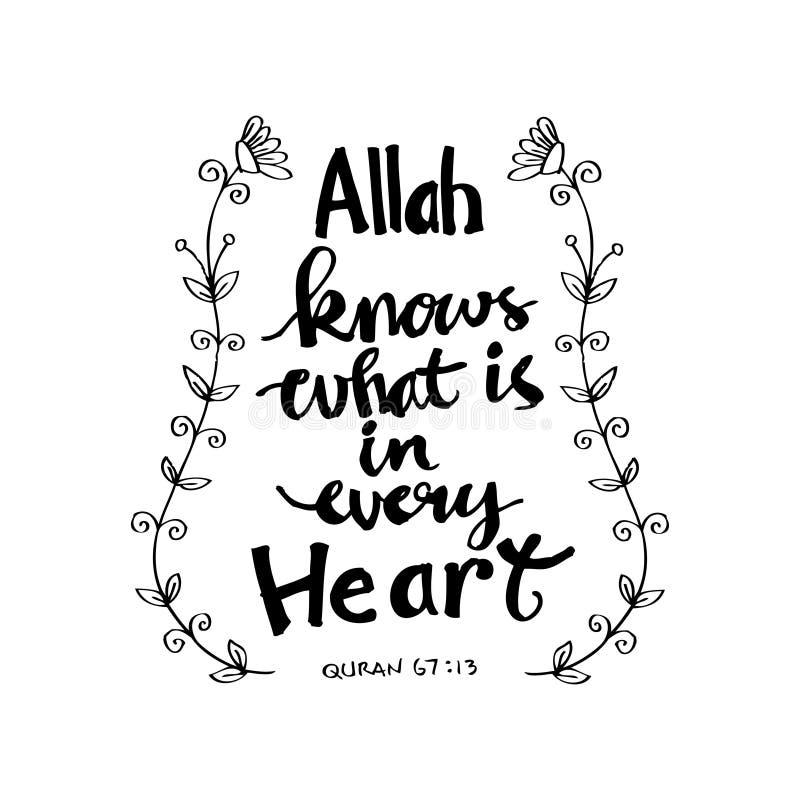 Allah
knows
what is
in
every
Heart
QURAN 67:13
dreamstime